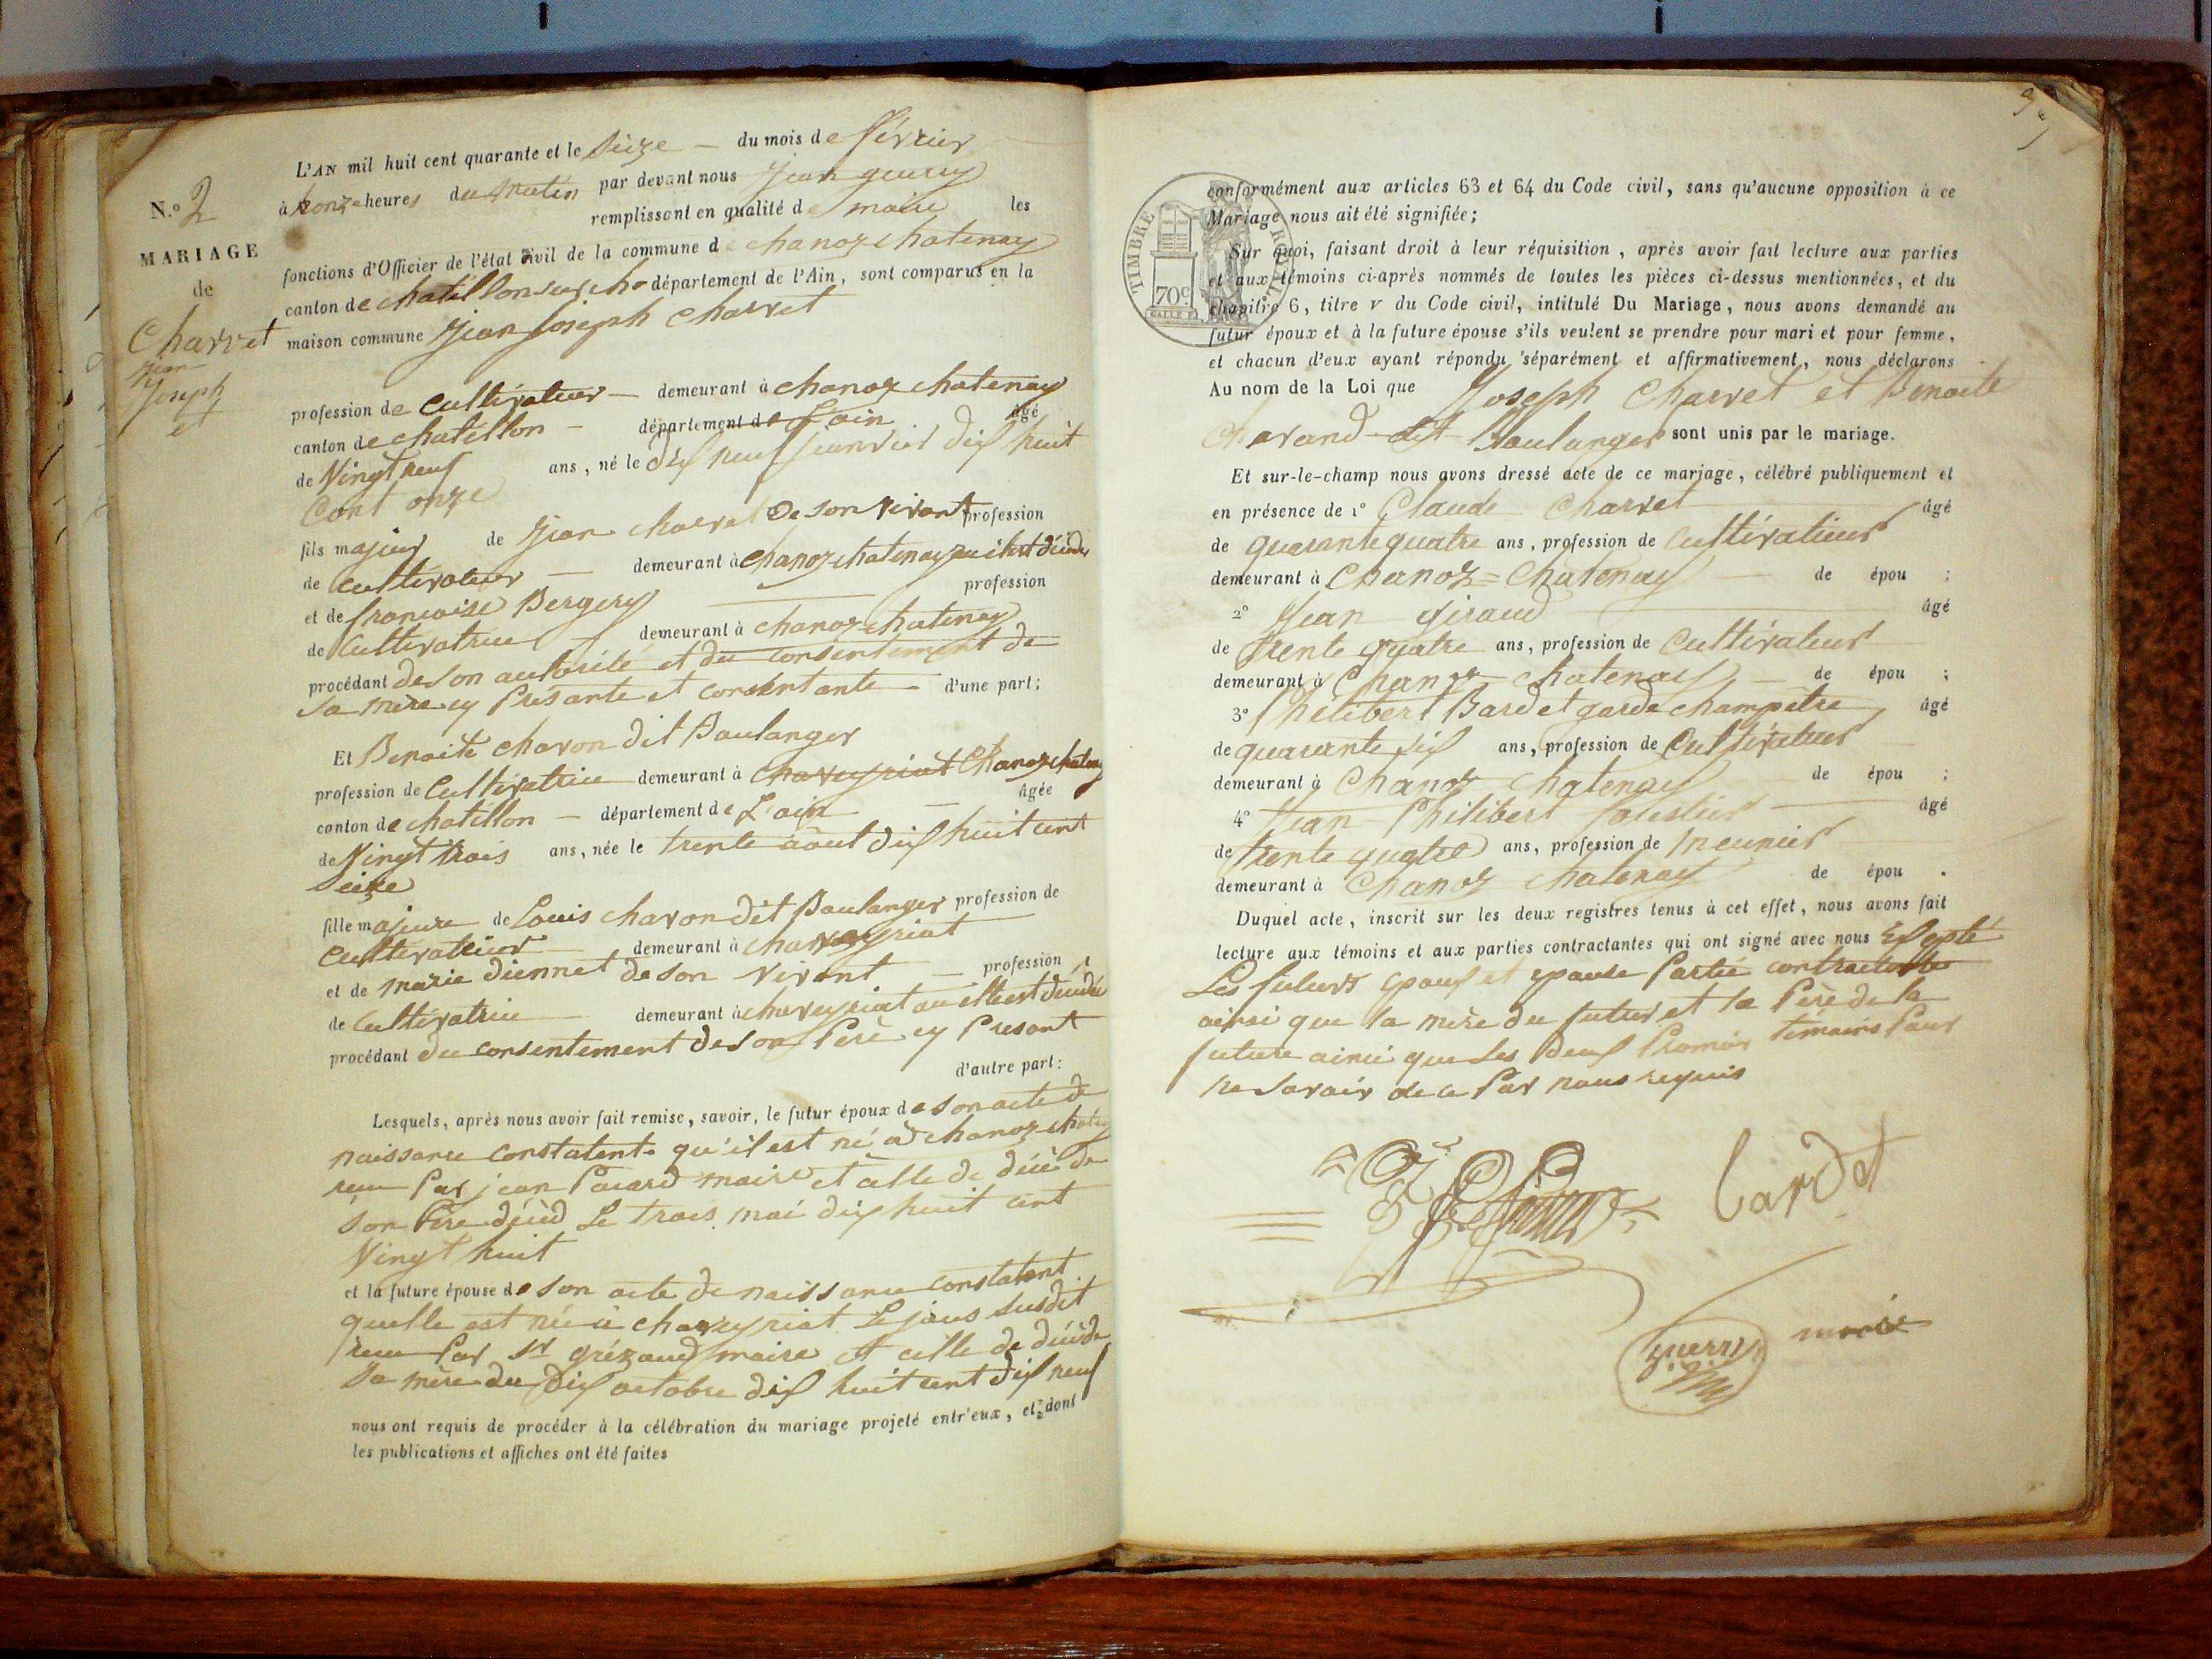 L'AN mil huit cent quarante et le Seize — du mois de février
à honze heures du Matin par devant nous Jean guerry
remplissant en qualité de maire les
fonctions d'Officier de l'état civil de la commune de chanoz chatenay
canton de chatillon sur cha département de l'Ain, sont comparus en la
maison commune Jean Joseph Charvet
N.º 2
MARIAGE
de
Charvet
jean
Joseph
et
profession de Cultivateur — demeurant à chanoz chatenay
canton de chatillon — département de L'ain âgé
de Vingt neuf ans, né le dix neuf janvier dix huit
Cent onze
fils majeur de Jean charvet De son vivant profession
de Cultivateur — demeurant à chanoz chatenay ou il est décédé
et de françoise Bergery profession
de Cultivatrice — demeurant à chanoz chatenay
procédant de son autorité et du consentement de
Sa mère cy Présante et consentante — d'une part;
Et Benoite charon dit Boulanger
profession de Cultivatrice demeurant à chaveyriat Chanoz chatenay
canton de chatillon — département de L'ain — âgée
de Vingt trois ans, née le trente août dix huit cent
Seize
fille majeure de Louis charon dit Boulanger profession de
Cultivateur demeurant à chaveyriat
et de marie diennet de son vivant — profession
de Cultivatrice — demeurant à chaveyriat ou elle est décédée
procédant du consentement de son Père cy Présant
d'autre part:
Lesquels, après nous avoir fait remise, savoir, le futur époux de son acte de
naissance constatent qu'il est né a chanoz chatenay
reçu Par jean Pacard maire et celle de décè de
son Père décéd Le trois mai dix huit cent
Vingt huit
et la future épouse de son acte de naissance constatent
quelle est née à chaveyriat Le jour susdit
reçu Par Sr grézaud maire et celle de décè de
Sa mère du Dix octobre dix huit cent dix neuf
nous ont requis de procéder à la célébration du mariage projeté entr'eux, et dont
les publications et affiches ont été faites
conformément aux articles 63 et 64 du Code civil, sans qu'aucune opposition à ce
Mariage nous ait été signifiée;
Sur quoi, faisant droit à leur réquisition, après avoir fait lecture aux parties
et aux témoins ci-après nommés de toutes les pièces ci-dessus mentionnées, et du
chapitre 6, titre v du Code civil, intitulé Du Mariage, nous avons demandé au
futur époux et à la future épouse s'ils veulent se prendre pour mari et pour femme,
et chacun d'eux ayant répondu séparément et affirmativement, nous déclarons
Au nom de la Loi que Joseph Charvet et Benoite
Charand dit Boulanger sont unis par le mariage.
Et sur-le-champ nous avons dressé acte de ce mariage, célébré publiquement et
en présence de 1º Claude Charvet âgé
de quarante quatre ans, profession de Cultivateur
demeurant à Chanoz = Chatenay — de épou ;
2º Jean Giraud âgé
de trente quatre ans, profession de Cultivateur
demeurant à Chanoz chatenay — de épou ;
3º Philibert Bardet garde champêtre âgé
de quarante six ans, profession de Cultivateur
demeurant à Chanoz chatenay de épou ;
4º Jean Philibert âgé
de trente quatre ans, profession de Meunier
demeurant à Chanoz chatenay de épou .
Duquel acte, inscrit sur les deux registres tenus à cet effet, nous avons fait
lecture aux témoins et aux parties contractantes qui ont signé avec nous Exepté
Les futurs epoux et epouse Partie contractante
ainsi que la mère du futur et le Père de la
future ainsi que Les deux Promier témoins Pour
ne Savoir de ce Par nous requis
TIMBRE ROYAL
70c
bardet
guerry maire